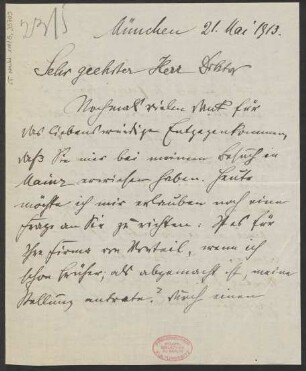 München 21. Mai 1913.
Sehr geehrter Herr Doktor
Nochmals vielen Dank für
das liebenswürdige Entgegenkommen,
daß Sie mir bei meinem Besuch in
Mainz erwiesen haben. Heute
möchte ich mir erlauben noch eine
Frage an Sie zu richten: Ist es für
Ihre Firma von Vorteil, wenn ich
schon früher, als abgemacht ist, meine
Stellung antrete? Durch einen